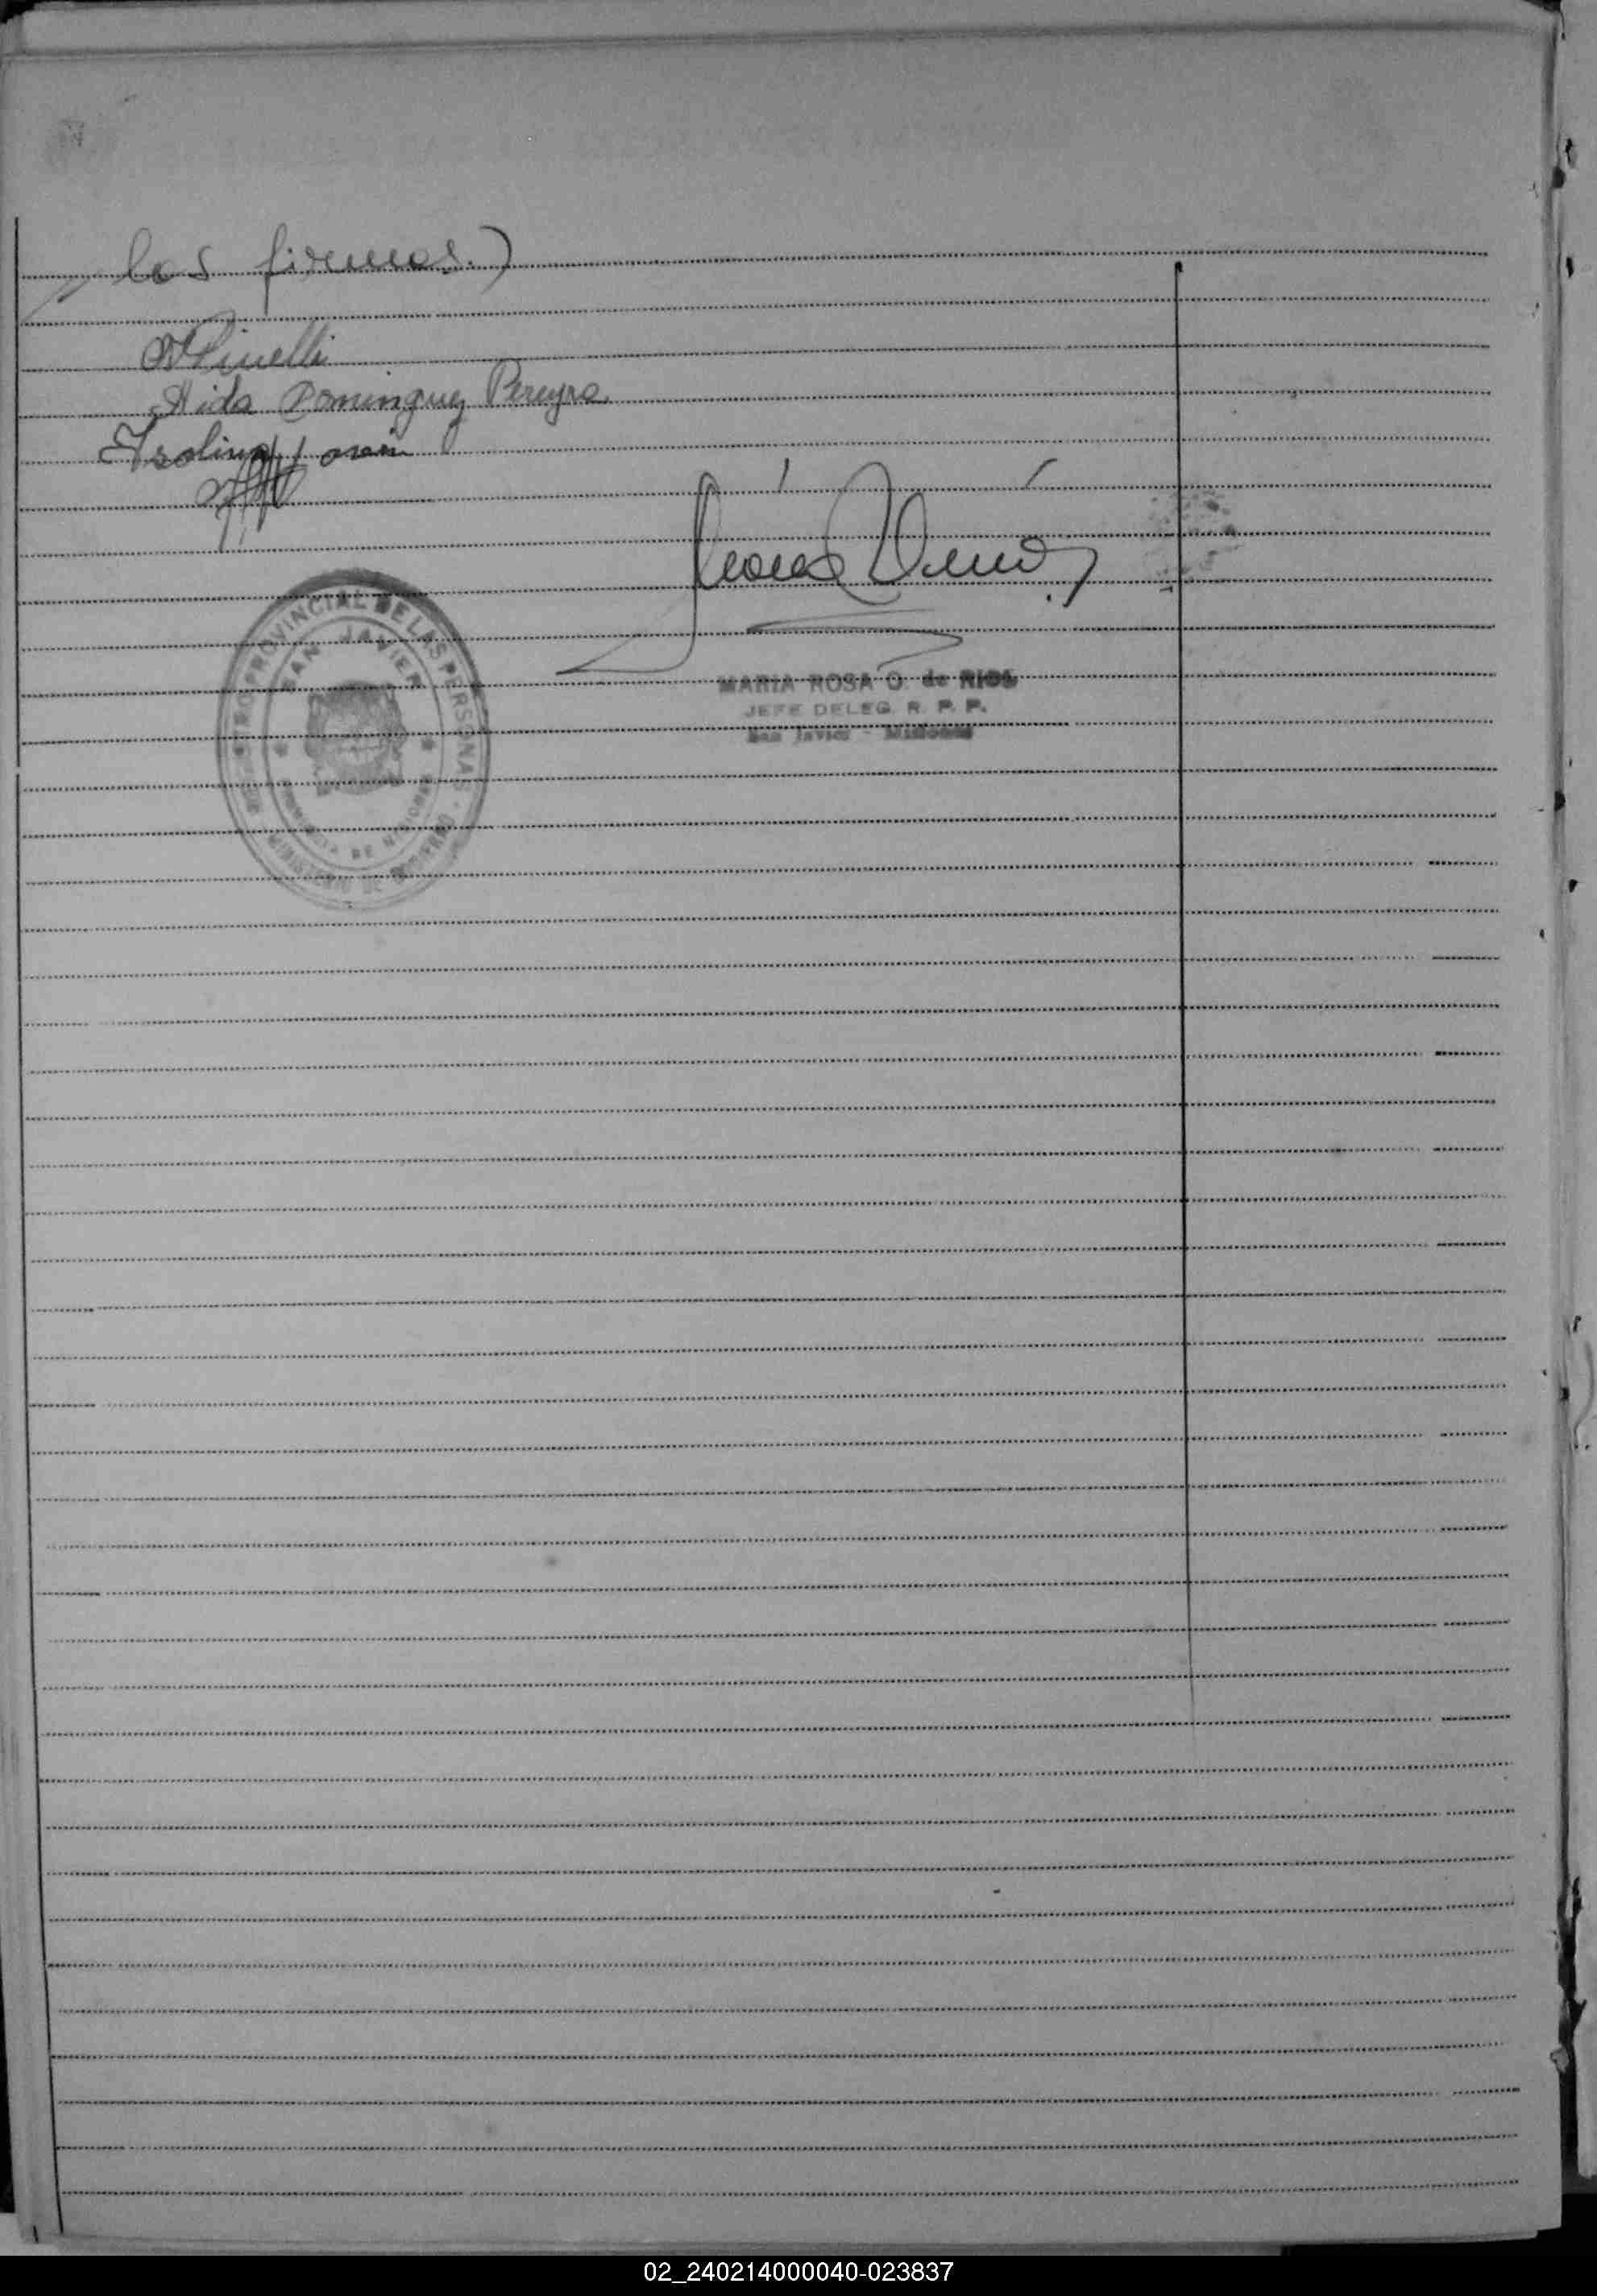 los firmas.)
Aida Dominguez Pereyra
Isolina
REGISTRO PROVINCIAL DE LAS PERSONAS
SAN JAVIER
PROVINCIA DE MISIONES
MINISTERIO DE GOBIERNO
MARIA ROSA O. de RIOS
JEFE DELEG. R. P. P.
San Javier - Misiones
02_240214000040-023837